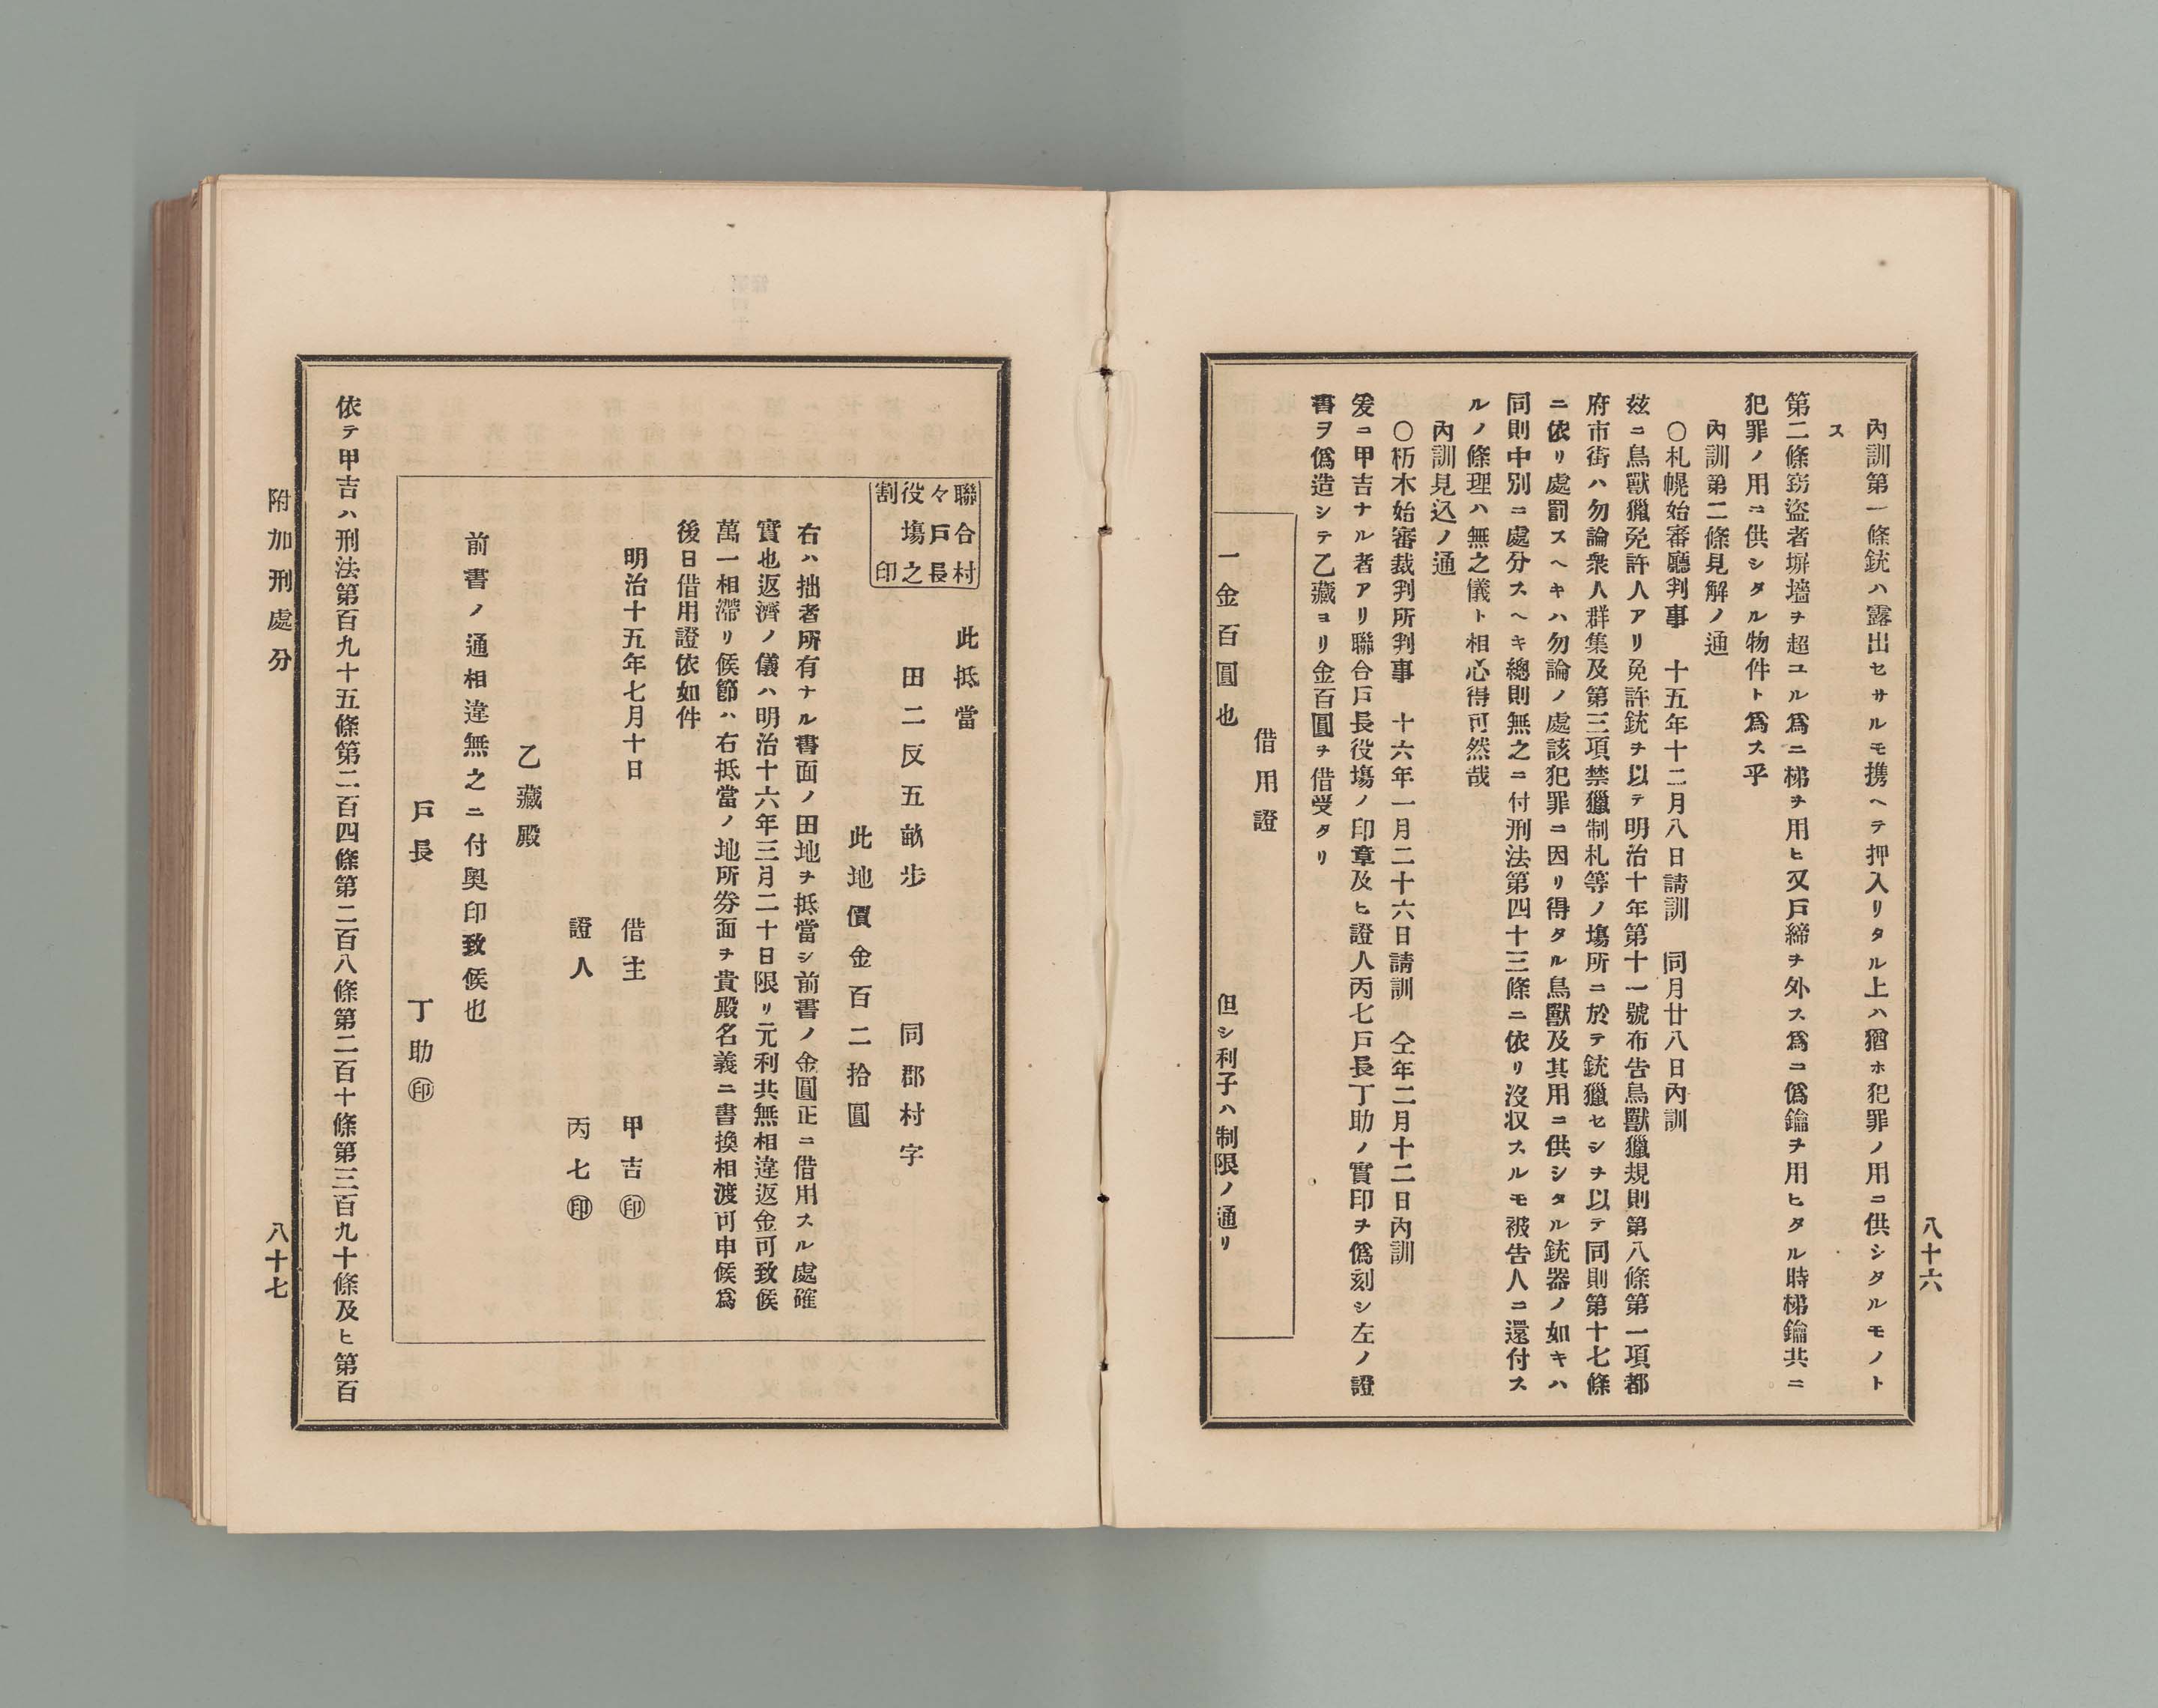 八十六
內訓第一條銃ハ露出セサルモ携ヘテ押入リタル上ハ猶ホ犯罪ノ用ニ供シタルモノト
ス
第二條窃盗者塀墻ヲ超ユル爲ニ梯ヲ用ヒ又戶締ヲ外ス爲ニ僞鑰ヲ用ヒタル時梯鑰共ニ
犯罪ノ用ニ供シタル物件ト爲ス乎
內訓第二條見解ノ通
〇札幌始審廳判事　十五年十二月八日請訓　同月廿八日內訓
玆ニ鳥獸獵免許人アリ免許銃ヲ以テ明治十年第十一號布告鳥獸獵規則第八條第一項都
府市街ハ勿論衆人群集及第三項禁獵制札等ノ塲所ニ於テ銃獵セシヲ以テ同則第十七條
ニ依リ處罰スヘキハ勿論ノ處該犯罪ニ因リ得タル鳥獸及其用ニ供シタル銃器ノ如キハ
同則中別ニ處分スヘキ總則無之ニ付刑法第四十三條ニ依リ沒収スルモ被告人ニ還付ス
ルノ條理ハ無之儀ト相心得可然哉
內訓見込ノ通
〇栃木始審裁判所判事　十六年一月二十六日請訓　仝年二月十二日內訓
爰ニ甲吉ナル者アリ聯合戶長役塲ノ印章及ヒ證人丙七戶長丁助ノ實印ヲ僞刻シ左ノ證
書ヲ僞造シテ乙藏ヨリ金百圓ヲ借受タリ
借用證
一金百圓也　但シ利子ハ制限ノ通リ
聯合村
々戶長
役塲之
割印
此抵當
同郡村字
田二反五畝歩
此地價金百二拾圓
右ハ拙者所有ナル書面ノ田地ヲ抵當シ前書ノ金圓正ニ借用スル處確
實也返濟ノ儀ハ明治十六年三月二十日限リ元利共無相違返金可致候
萬一相滯リ候節ハ右抵當ノ地所券面ヲ貴殿名義ニ書換相渡可申候爲
後日借用證依如件
明治十五年七月十日
借主　甲吉㊞
證人　丙七㊞
乙藏殿
前書ノ通相違無之ニ付奧印致候也
戶長　丁助㊞
依テ甲吉ハ刑法第百九十五條第二百四條第二百八條第二百十條第三百九十條及ヒ第百
附加刑處分
八十七